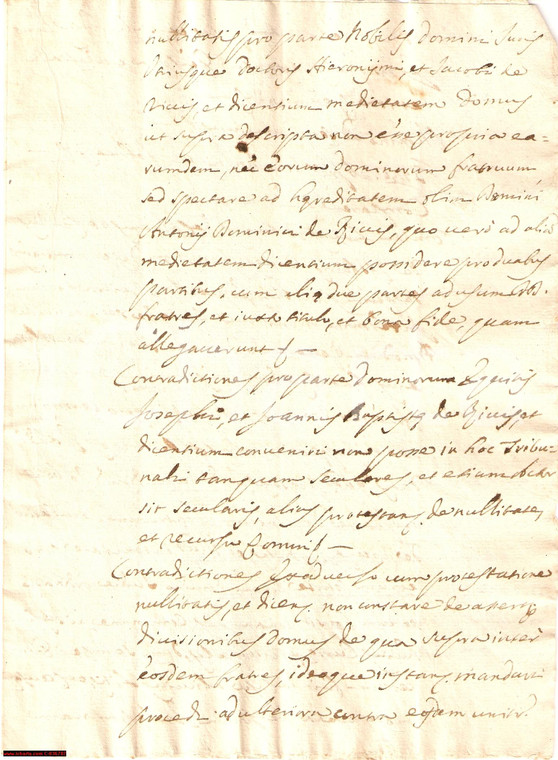 nullitatis pro parte Nobilis domini Juris
Utriusque Doctoris Hieronymi, et Jacobi de
Ricijs, et dicentium medietatem domus
ut supra descripta non esse propria ea-
rumdem, nec eorum dominorum fratruum,
sed spectare ad hęreditatem olim Domini
Antonij Dominici de Ricijs, quo vero ad aliã
medietatem dicentium possidere pro duabus
partibus, cum alię due partes ad usum
fratres, et iuxta titulo, et bona fide, quam
allegaverunt
Contradictiones pro parte dominorum Equitis
Josephi, et Joannis Baptistę de Ricijs, et
dicentium conveniri non posse in hoc Tribu-
nali tanquam seculares, et etiam
sit secularis, alias protestans de nullitate,
et recursu
Contradictiones ex adverso cum protestatione
nullitatis, et dicens non constare de assertis
divisionibus domus de qua supra inter
eosdem fratres, ideoque instans mandari
procedi ad ulteriora contra